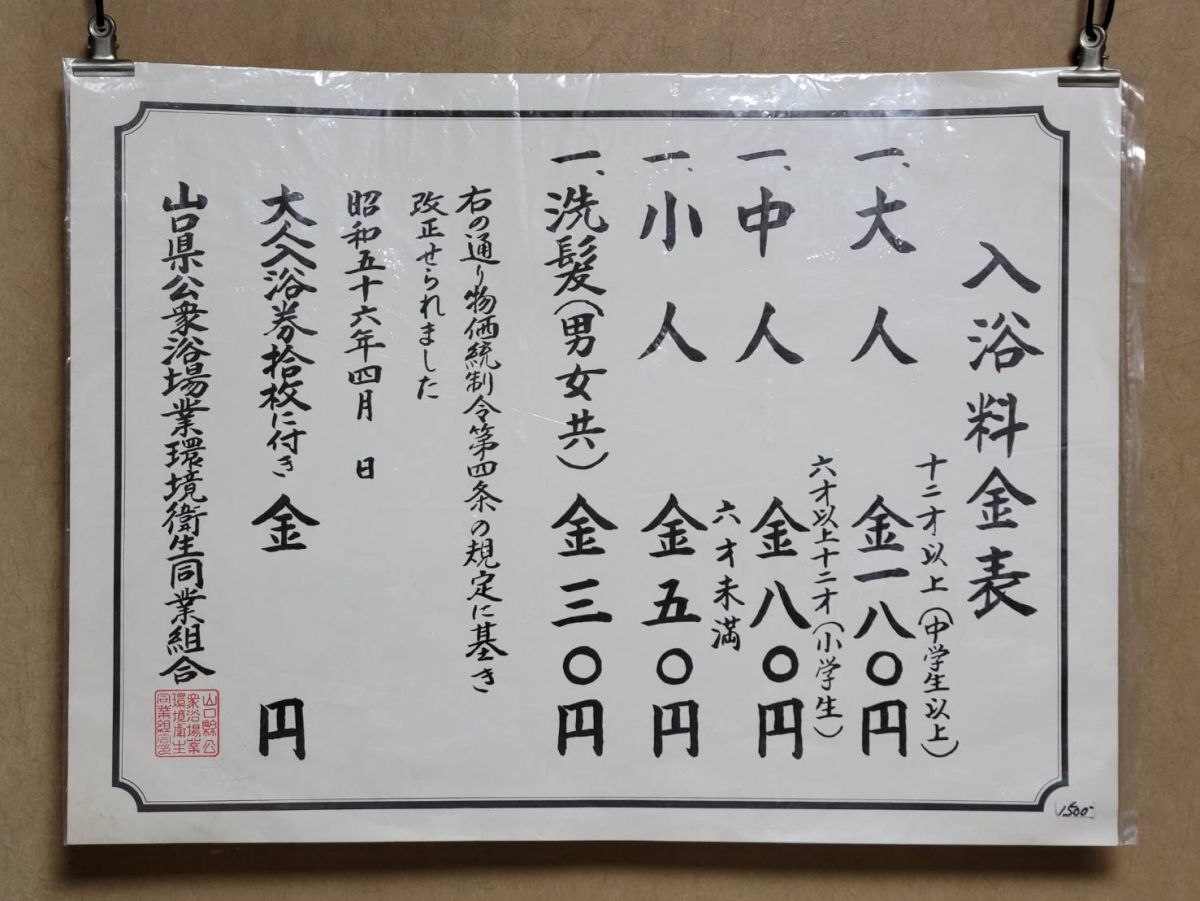 入浴料金表
一、大人 金一八〇円
十二才以上(中学生以上)
一、中人 金八〇円
六才以上十二才(小学生)
一、小人 金五〇円
六才未満
一、洗髪(男女共) 金三〇円
右の通り物価統制令第四条の規定に基き
改正せられました
昭和五十六年四月 日
大人入浴券拾枚に付き 金 円
山口県公衆浴場業環境衛生同業組合
山口縣公
衆浴場業
環境衛生
同業組合印
1,500-